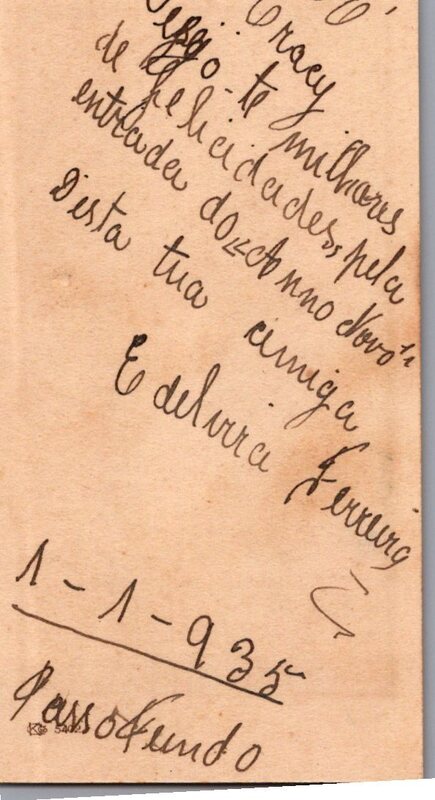 Cracy
Desejo-te milhares
de felicidades,, pela
entrada do "Anno Novo"
Desta tua amiga
Edelvira Ferreira
1-1-935
Passo Fundo